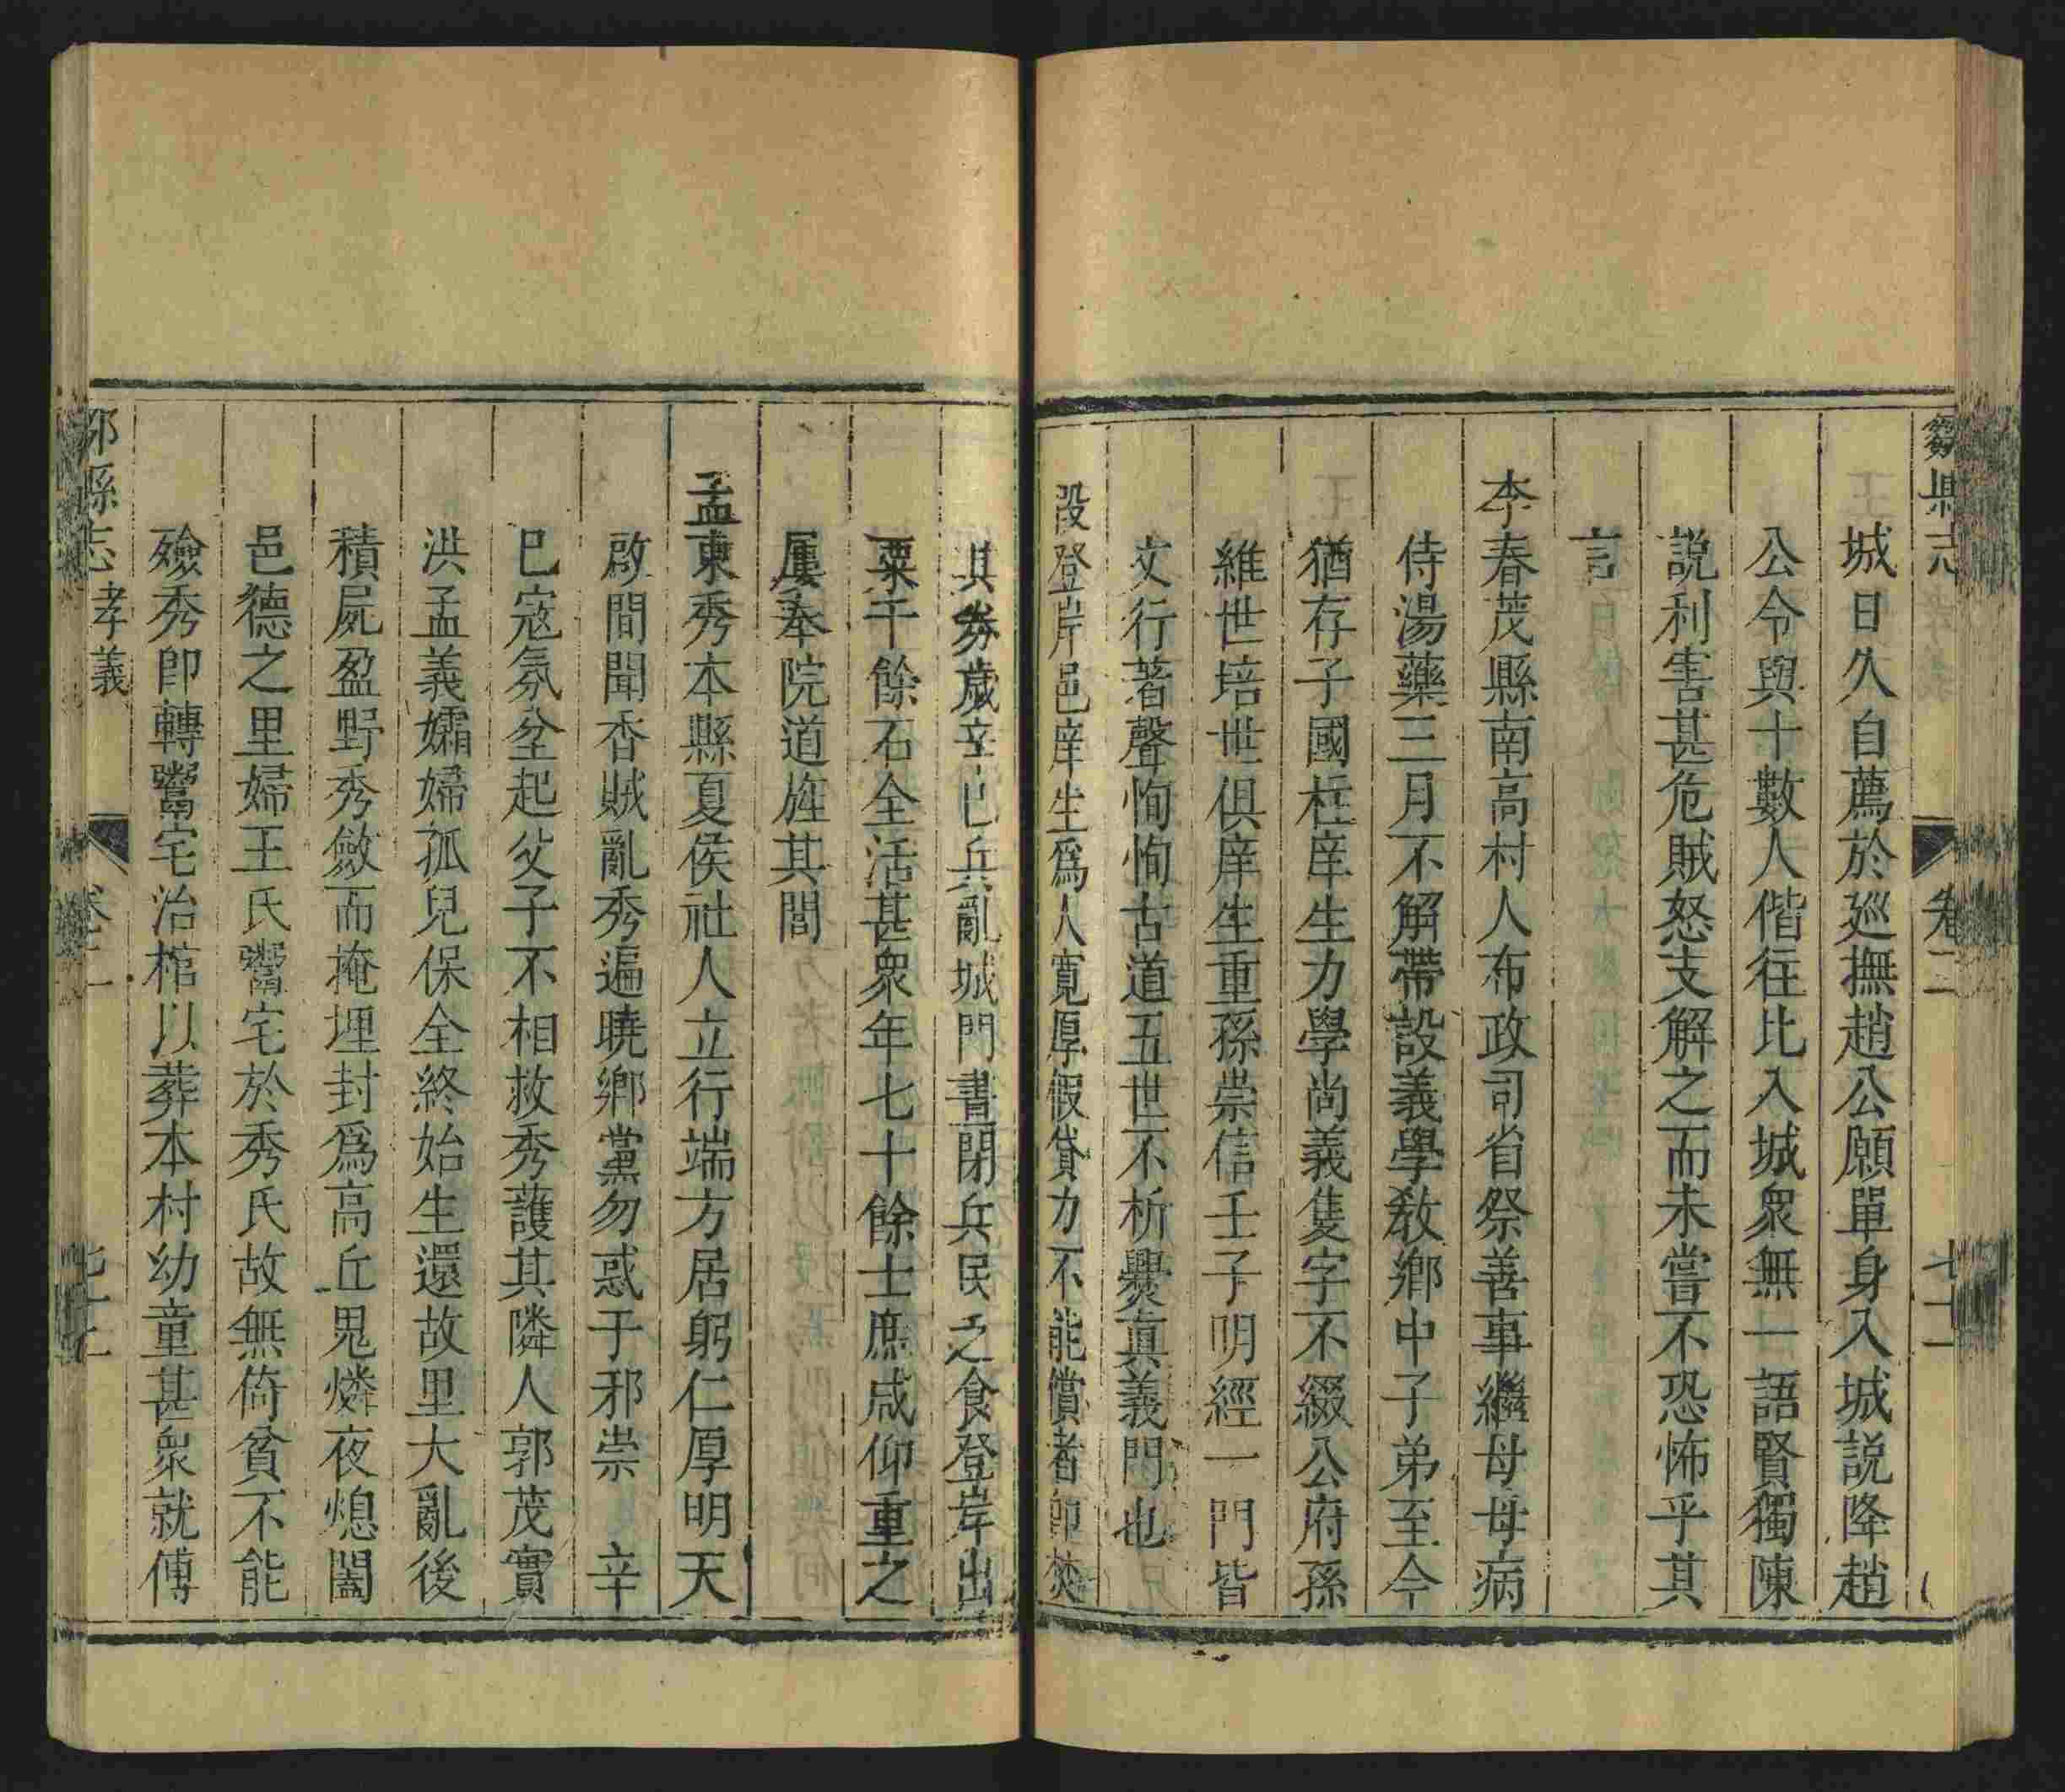 縣志 卷二
城日久自薦於巡撫趙公願單身入城説降趙
公令與十數人偕往比入城衆無一語賢獨陳
説利害甚危賊怒支解之而未嘗不恐怖乎其
言
李春茂縣南高村人布政司省祭善事繼母母病
侍湯藥三月不解帶設義學教鄉中子弟至今
猶存子國柱庠生力學尚義隻字不綴公府孫
維世培世俱庠生重孫崇信壬子明經一門皆
文行著聲恂恂古道五世不析爨真義門也
段登岸邑庠生爲人寬厚假貸力不能償者卽焚
其劵歲辛巳兵亂城門晝閉兵民乏食登岸出
粟千餘石全活甚衆年七十餘士庶咸仰重之
屢奉院道旌其閭
孟東秀本縣夏侯社人立行端方居躬仁厚明天
啟間聞香賊亂秀遍曉鄉黨勿惑于邪崇 辛
巳寇氛坌起父子不相救秀護其隣人郭茂實
洪孟義孀婦孤兒保全終始生還故里大亂後
積屍盈野秀斂而掩埋封爲高丘鬼燐夜熄闔
邑德之里婦王氏鬻宅於秀氏故無倚貧不能
殮秀卽轉鬻宅治棺以葬本村幼童甚衆就傅
縣志 孝義